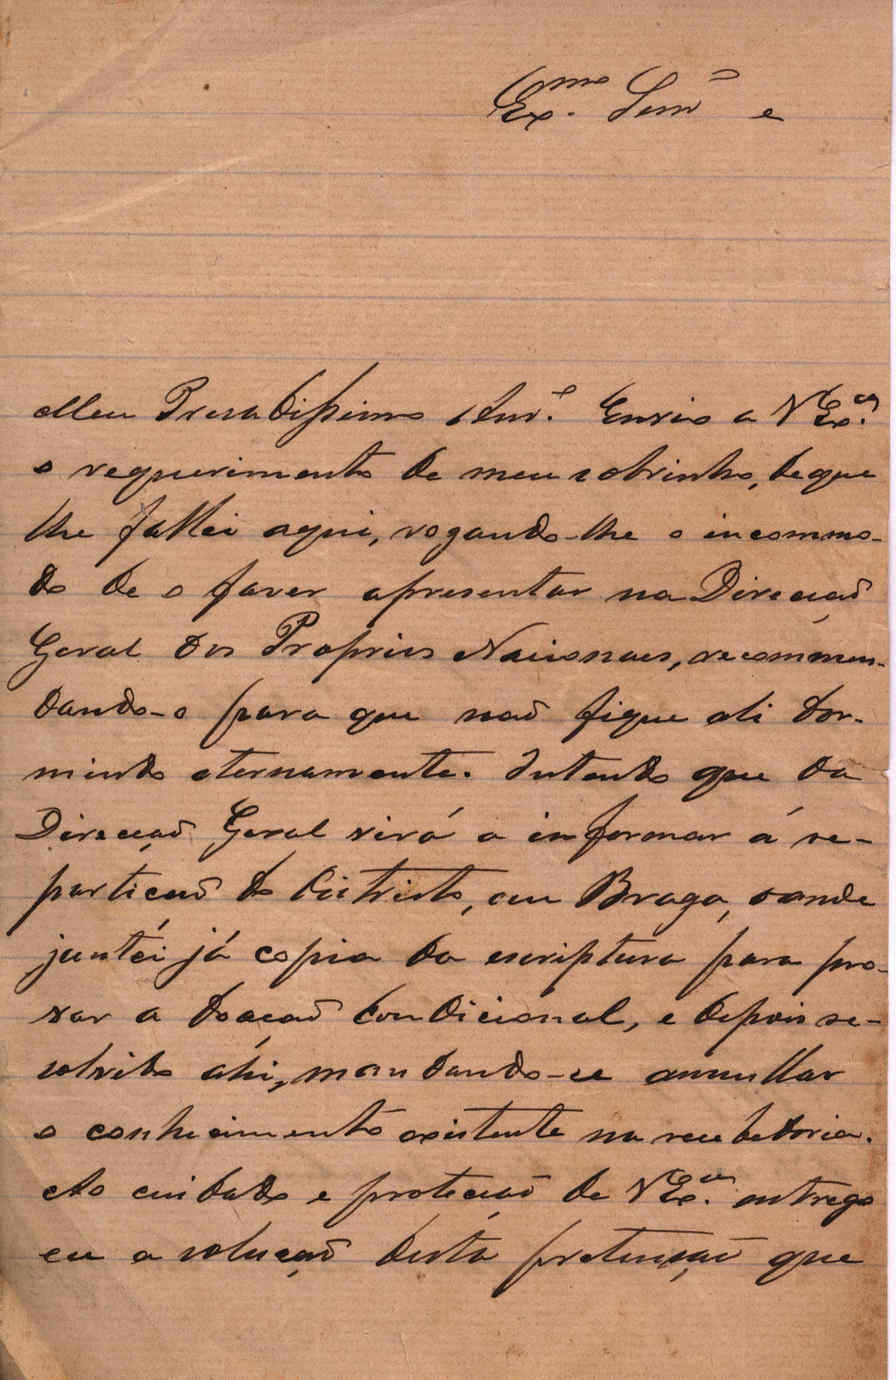 Ex.mo Senr e
Meu Presadissimo Am.o Envio a V Ex.a
o requerimento de meu sobrinho, de que
lhe fallei aqui, rogando-lhe o incommo-
do de o fazer apresentar na Direcção
Geral dos Proprios Nacionaes, recommen-
dando-o para que não fique ali dor-
mindo eternamente. Intendo que da
Direcção Geral virá a informar á re-
partição do Districto, em Braga, onde
juntei já copia da escriptura para pro-
var a doação condicional, e depois re-
solvido ahi, mandando-se annullar
o conhecimento existente na recebedoria.
Ao cuidado e protecção de V Ex.a entrego
eu a solução desta pretenção que